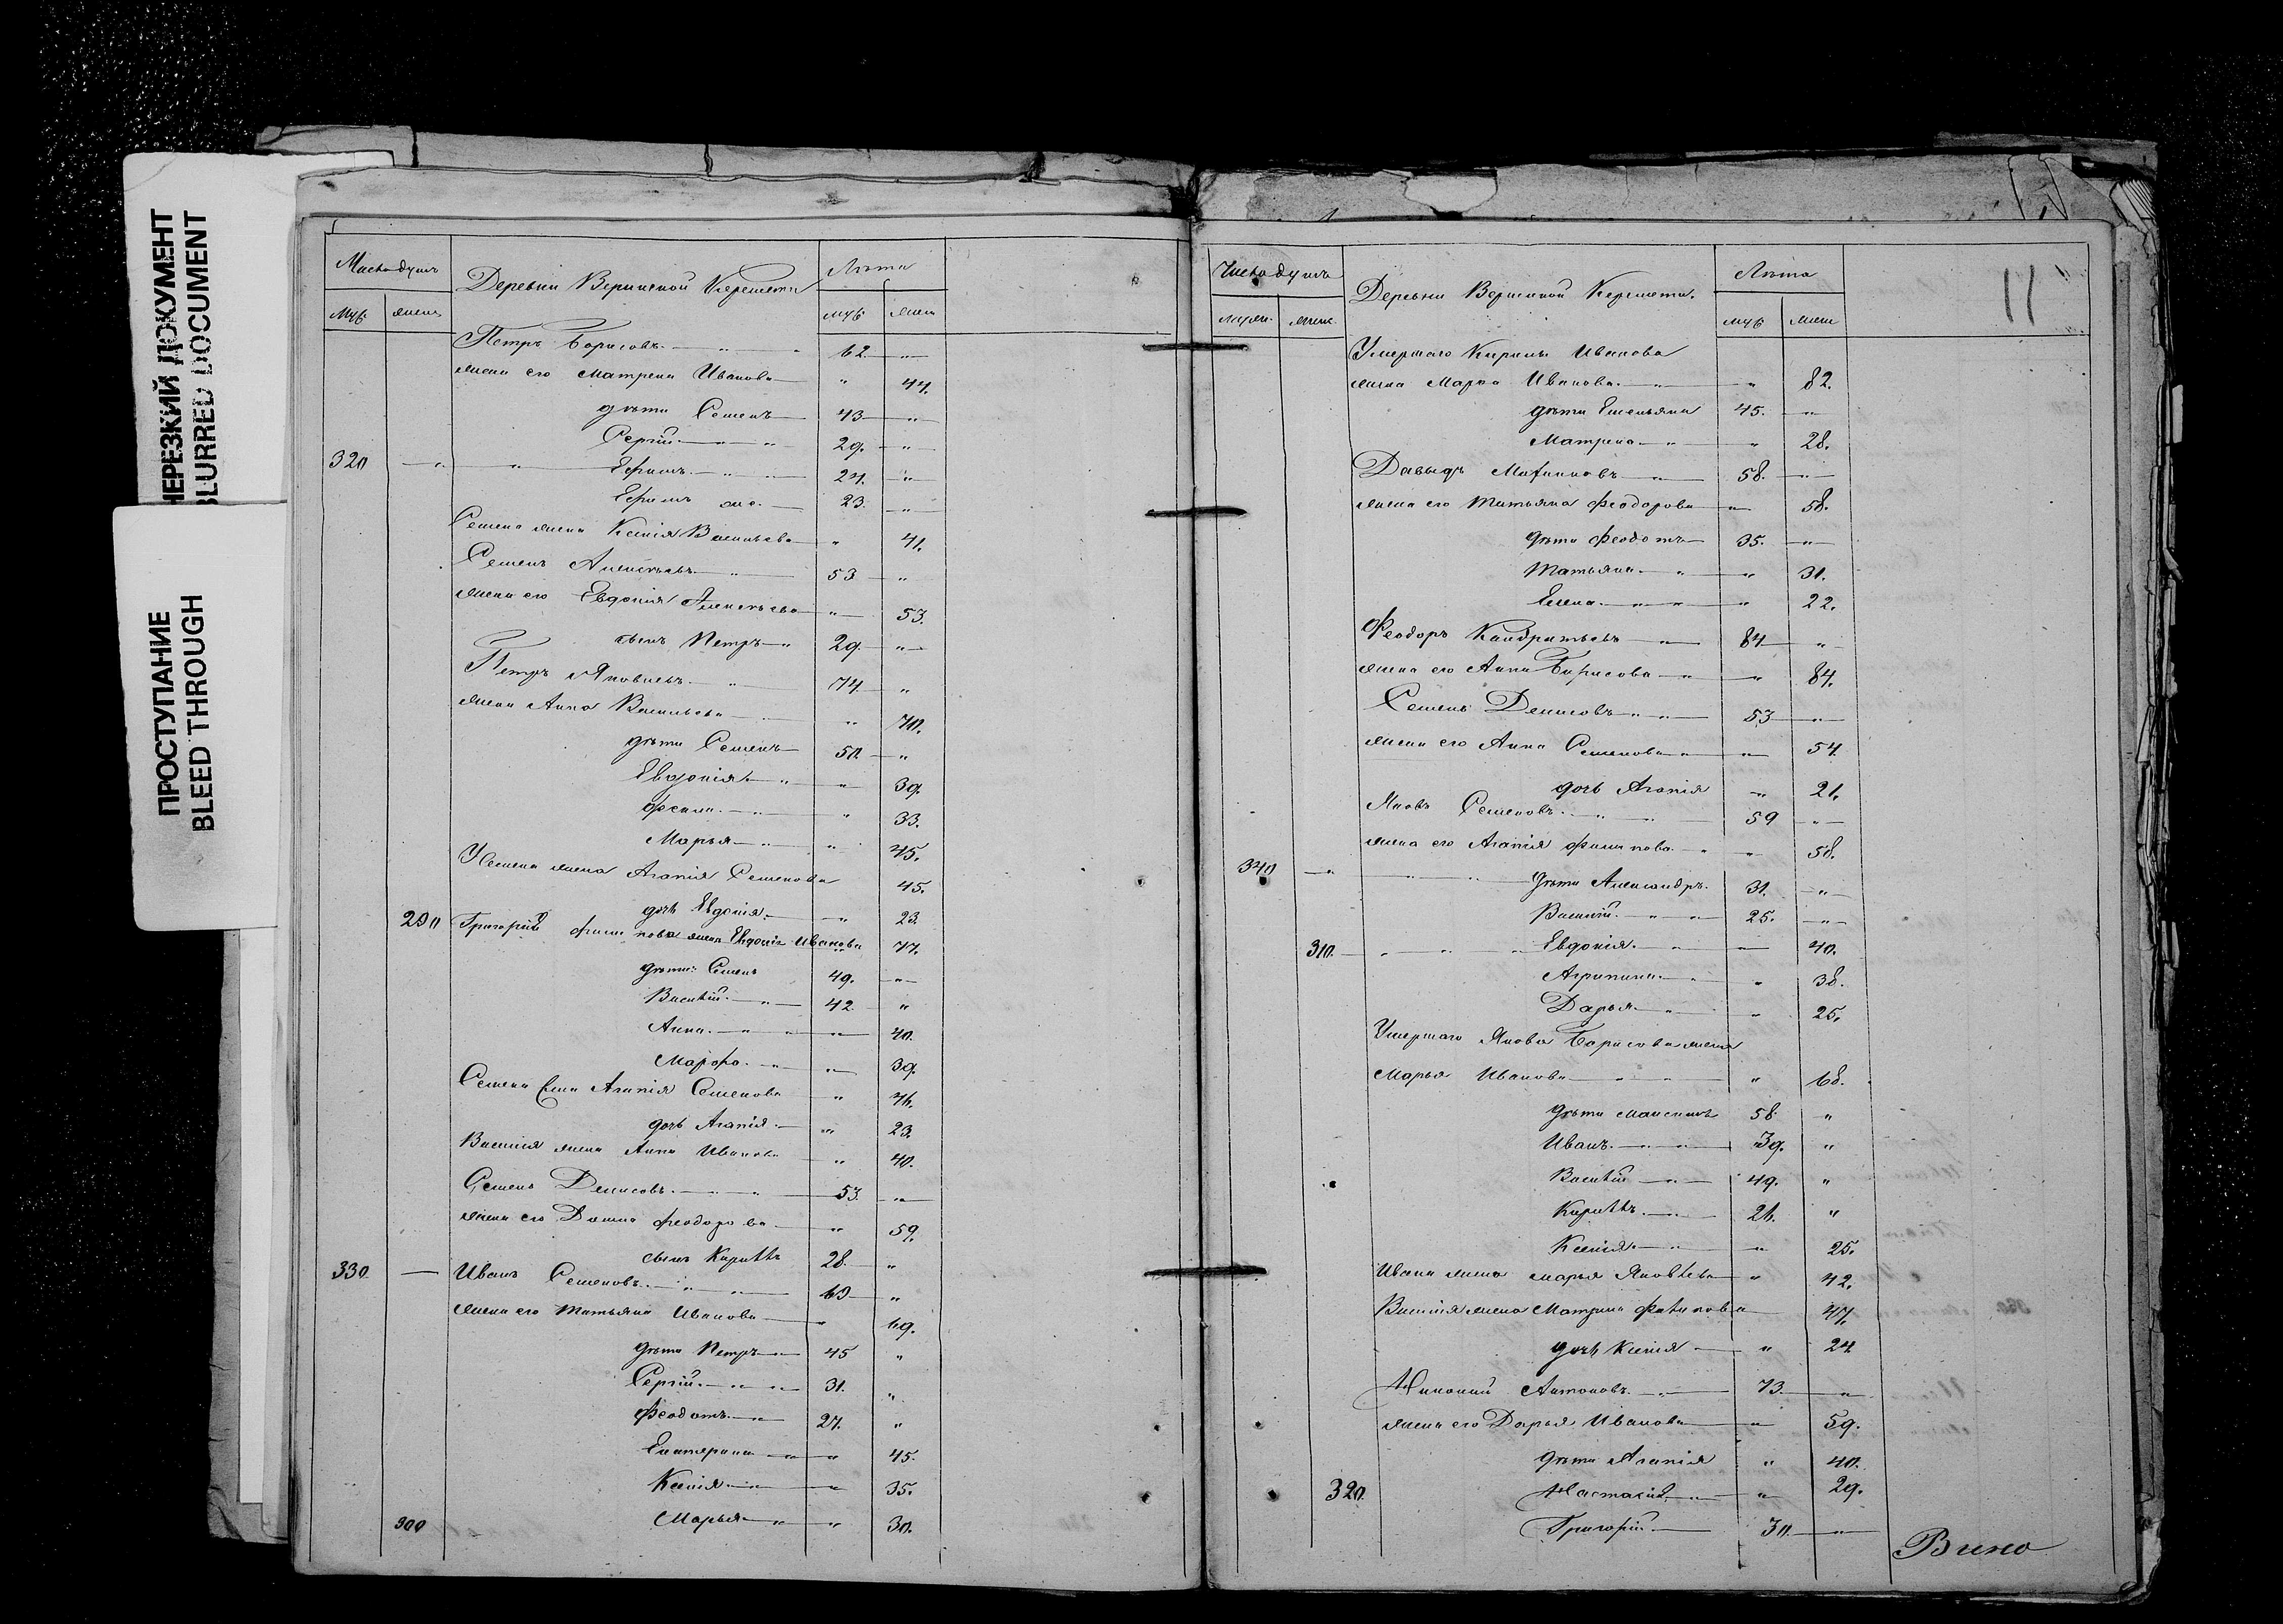 НЕРЕЗКИЙ ДОКУМЕНТ
BLURRED DOCUMENT
ПРОСТУПАНИЕ
BLEED THROUGH
Число душъ
Деревни Вершиной Керешети
Лѣта
муж. жен.
муж. жен.
Петръ Борисовъ 62 "
жена его Матрена Иванова " 44.
дѣти Семенъ 43 "
Сергій 29. "
320 Ефимъ 24. "
Ефимъ же 23. "
Семена жена Ксенія Васильева " 41.
Семенъ Алексѣевъ 53 "
жена его Евдокія Алексѣева " 53.
сынъ Петръ 29. "
Петръ Яковлевъ 74 "
жена Анна Васильева " 70.
дѣти Семенъ 50. "
Евдокія " 39.
Фекла " 33.
Марья " 45.
Семена жена Агапія Семенова 45.
дочь Евдокія " 23.
290 Григорій Филипова жена Евдокія Иванова 77.
дѣти: Семенъ 49. "
Василій 42 "
Анна " 40.
Марфа " 39.
Семена Агапія Семенова " 46.
дочь Агапія " 23.
Василія жена Анна Иванова " 40.
Семенъ Денисовъ 53. "
жена его Домна Феодорова " 59.
сынъ Кирилъ 28. "
330 Иванъ Семеновъ 69 "
жена его Татьяна Иванова " 69.
дѣти Петръ 45 "
Сергій 31. "
Феодотъ 27. "
Екатерина " 45.
Ксенія " 35.
300 Марья " 30.
11
Число душъ
Деревни Вершиной Керешети.
Лѣта
муж. жен.
муж жен
Умершаго Кирилы Иванова
жена Марфа Иванова " 82.
дѣти Емельянъ 45. "
Матрена " 28.
Давыдъ 58. "
жена его Татьяна Феодорова " 58.
дѣти Феодотъ 35. "
Татьяна " 31.
Елена " 22.
Феодоръ Кандратьевъ 84 "
жена его Анна Борисова " 84.
Семенъ Денисовъ 53 "
жена его Анна Семенова " 54.
дочь Агапія " 21.
Яковъ Семеновъ 59 "
жена его Агапія Филипова " 58.
340 дѣти Александръ 31. "
Василій 25. "
310. Евдокія " 40.
Агрипина " 38.
Дарья " 25.
Умершаго Якова Борисова жена
Марья Иванова " 68.
дѣти Максимъ 58. "
Иванъ 39. "
Василій 49. "
Кирилъ 26. "
Ксенія " 25.
Ивана жена Марья Яковлева " 42.
Василія жена Матрена Филипова 47.
дочь Ксенія " 24.
Антоновъ 73. "
жена его Дарья Иванова " 59.
дѣти Агапія " 40.
320. Настасія " 29.
Григорій 30. "